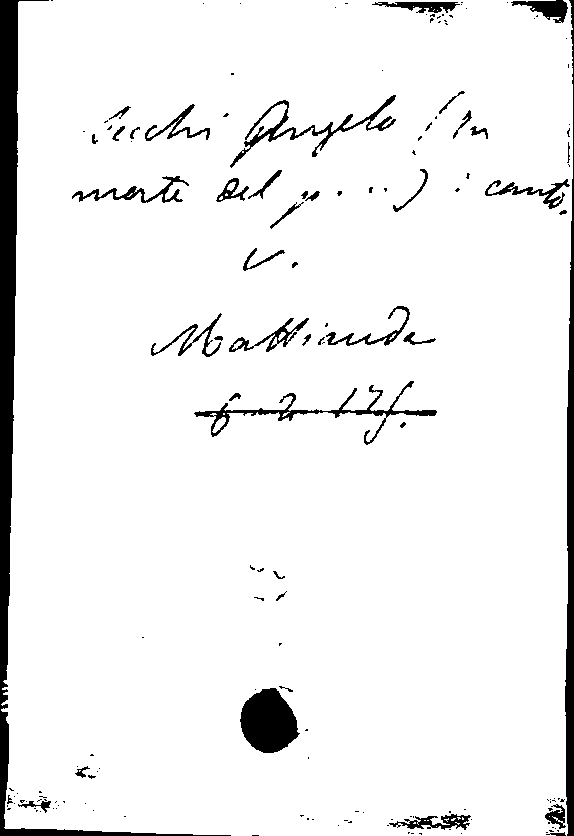 Secchi Angelo (In
morte del p. ..) : canto.
v.
Mattiauda
6 2 17 f.